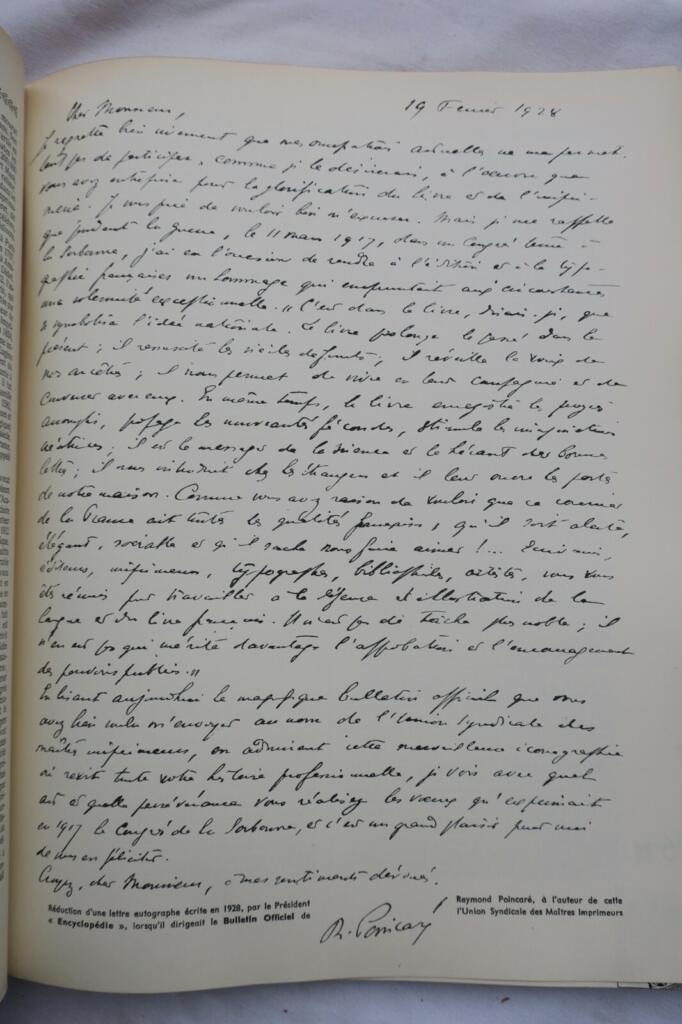 19 Février 1928
Cher Monsieur,
Je regrette bien vivement que mes occupations actuelles ne me permet-
tent pas de participer, comme je le désirerais, à l'œuvre que
vous avez entreprise pour la glorification du livre et de l'impri-
merie. Je vous prie de vouloir bien m'excuser. Mais je me rappelle
que pendant la guerre, le 11 mars 1917, dans un Congrès tenu à
la Sorbonne, j'ai eu l'occasion de rendre à l'édition et à la typo-
graphie françaises un hommage qui empruntait aux circonstances
une solennité exceptionnelle. « C'est dans le livre, disais-je, que
se symbolise l'idée nationale. Le livre prolonge le passé dans le
présent ; il ressuscite les siècles défunts ; il réveille la voix de
nos ancêtres ; il nous permet de vivre en leur compagnie et de
converser avec eux. En même temps, le livre enregistre les progrès
accomplis, propage les nouveautés fécondes, stimule les imaginations
créatrices ; il est le messager de la science et le héraut des bonnes
lettres ; il nous introduit chez les étrangers et il leur ouvre les portes
de notre maison. Comme vous avez raison de vouloir que ce courrier
de la France ait toutes les qualités françaises, qu'il soit alerte,
élégant, sociable et qu'il sache nous faire aimer !... Écrivains,
éditeurs, imprimeurs, typographes, bibliophiles, artistes, vous vous
êtes réunis pour travailler à la défense et illustration de la
langue et du livre français. Il n'est pas de tâche plus noble ; il
n'en est pas qui mérite davantage l'approbation et l'encouragement
des pouvoirs publics. »
En lisant aujourd'hui le magnifique bulletin officiel que vous
avez bien voulu m'envoyer au nom de l'Union Syndicale des
maîtres imprimeurs, en admirant cette merveilleuse iconographie
où revit toute votre histoire professionnelle, je vois avec quel
art et quelle persévérance vous réalisez les vœux qu'exprimait
en 1917 le Congrès de la Sorbonne, et c'est un grand plaisir pour moi
de vous en féliciter.
Croyez, cher Monsieur, à mes sentiments dévoués.
R. Poincaré
Réduction d'une lettre autographe écrite en 1928, par le Président Raymond Poincaré, à l'auteur de cette
« Encyclopédie », lorsqu'il dirigeait le Bulletin Officiel de l'Union Syndicale des Maîtres Imprimeurs